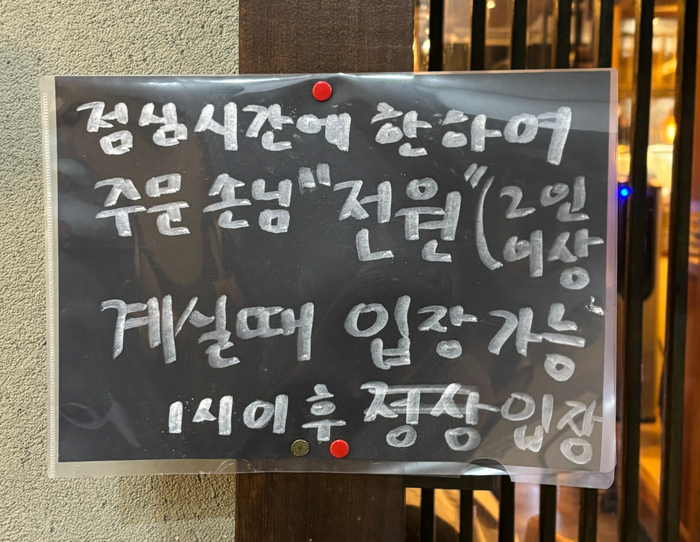 점심시간에 한하여
주문 손님 "전원" (2인
이상
계실때 입장 가능
1시이후 정상입장